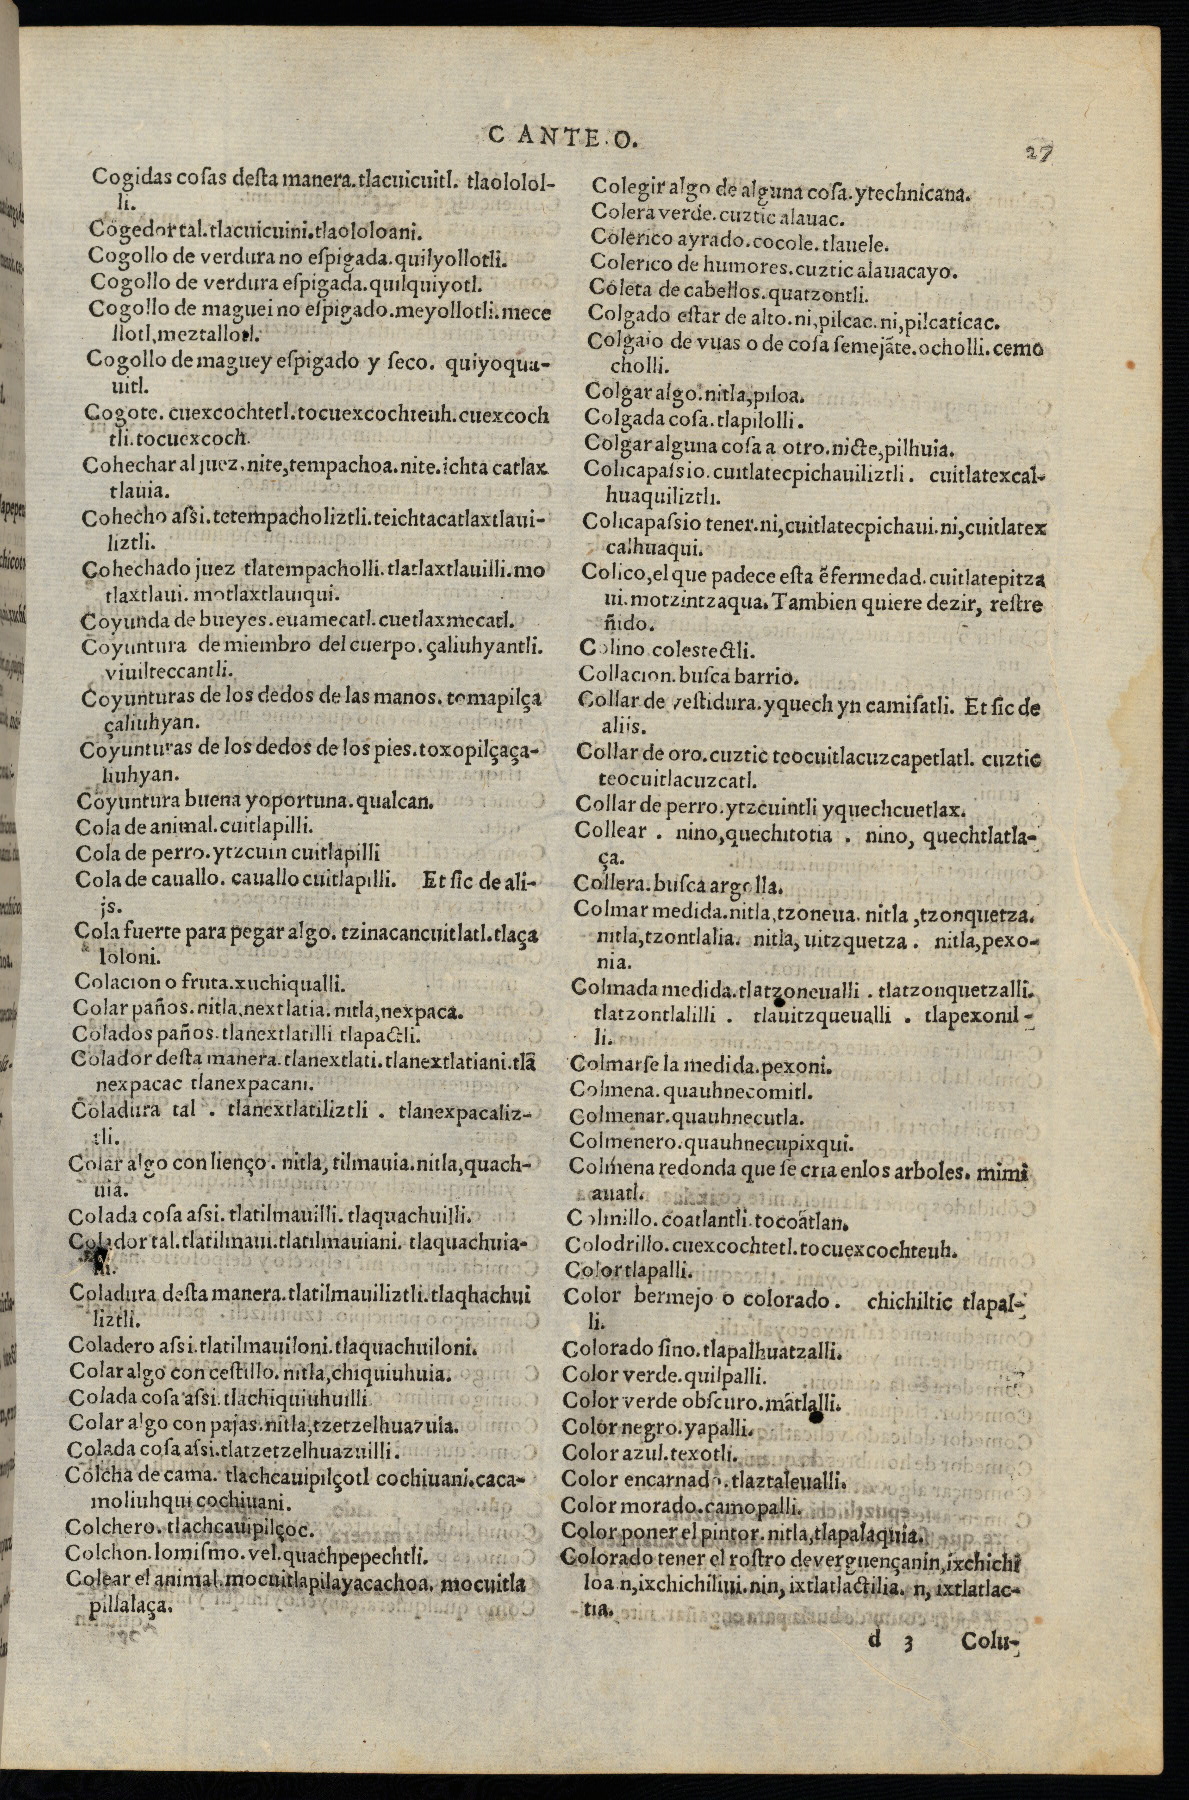 C ANTE O.
27
Cogidas cosas desta manera.tlacuicuitl. tlaololol-
li.
Cogedor tal.tlacuicuini.tlaololoani.
Cogollo de verdura no espigada.quilyollotli.
Cogollo de verdura espigada.quilquiyotl.
Cogollo de maguei no espigado.meyollotli.mece
llotl,meztallotl.
Cogollo de maguey espigado y seco. quiyoqua-
uitl.
Cogote. cuexcochtetl.tocuexcochteuh.cuexcoch
tli.tocuexcoch.
Cohechar al juez.nite,tempachoa.nite.ichta catlax
tlauia.
Cohecho assi.tetempacholiztli.teichtacatlaxtlaui-
liztli.
Cohechado juez tlatempacholli.tlatlaxtlauilli.mo
tlaxtlaui. motlaxtlauiqui.
Coyunda de bueyes.euamecatl.cuetlaxmecatl.
Coyuntura de miembro del cuerpo.çaliuhyantli.
viuilteccantli.
Coyunturas de los dedos de las manos.tomapilça
çaliuhyan.
Coyunturas de los dedos de los pies.toxopilçaça-
liuhyan.
Coyuntura buena yoportuna.qualcan.
Cola de animal.cuitlapilli.
Cola de perro.ytzcuin cuitlapilli
Cola de cauallo. cauallo cuitlapilli. Et sic de ali-
js.
Cola fuerte para pegar algo. tzinacancuitlatl.tlaça
loloni.
Colacion o fruta.xuchiqualli.
Colar paños.nitla,nextlatia.nitla,nexpaca.
Colados paños.tlanextlatilli tlapactli.
Colador desta manera.tlanextlati.tlanextlatiani.tlã
nexpacac tlanexpacani.
Coladura tal . tlanextlatiliztli . tlanexpacaliz-
tli.
Colar algo con lienço. nitla, tilmauia.nitla,quach-
uia.
Colada cosa assi. tlatilmauilli. tlaquachuilli.
Colador tal.tlatilmaui.tlatilmauiani. tlaquachuia-
ni.
Coladura desta manera.tlatilmauiliztli.tlaqhachui
liztli.
Coladero assi.tlatilmauiloni.tlaquachuiloni.
Colar algo con cestillo.nitla,chiquiuhuia.
Colada cosa assi.tlachiquiuhuilli
Colar algo con pajas.nitla,tzetzelhuazuia.
Colada cosa assi.tlatzetzelhuazuilli.
Colcha de cama. tlachcauipilçotl cochiuani.caca-
moliuhqui cochiuani.
Colchero. tlachcauipilçoc.
Colchon.lomismo.vel.quachpepechtli.
Colear el animal.mocuitlapilayacachoa. mocuitla
pillalaça.
Colegir algo de alguna cosa.ytechnicana.
Colera verde.cuztic alauac.
Colerico ayrado.cocole.tlauele.
Colerico de humores.cuztic alauacayo.
Coleta de cabellos.quatzontli.
Colgado estar de alto.ni,pilcac.ni,pilcaticac.
Colgajo de vuas o de cosa semejãte.ocholli.cemo
cholli.
Colgar algo.nitla,piloa.
Colgada cosa.tlapilolli.
Colgar alguna cosa a otro.nicte,pilhuia.
Colicapassio.cuitlatecpichauiliztli. cuitlatexcal-
huaquiliztli.
Colicapassio tener.ni,cuitlatecpichaui.ni,cuitlatex
calhuaqui.
Colico,el que padece esta ẽfermedad.cuitlatepitza
ui.motzintzaqua.Tambien quiere dezir, restre
ñido.
Colino colestectli.
Collacion.busca barrio.
Collar de vestidura.yquech yn camisatli. Et sic de
aliis.
Collar de oro.cuztic teocuitlacuzcapetlatl. cuztic
teocuitlacuzcatl.
Collar de perro.ytzcuintli yquechcuetlax.
Collear . nino,quechitotia . nino, quechtlatla-
ça.
Collera.busca argolla.
Colmar medida.nitla,tzoneua. nitla ,tzonquetza.
nitla,tzontlalia. nitla,uitzquetza. nitla,pexo-
nia.
Colmada medida.tlatzoneualli . tlatzonquetzalli.
tlatzontlalilli . tlauitzqueualli . tlapexonil-
li.
Colmarse la medida.pexoni.
Colmena.quauhnecomitl.
Colmenar.quauhnecutla.
Colmenero.quauhnecupixqui.
Colmena redonda que se cria enlos arboles. mimi
auatl.
Colmillo.coatlantli.tocoãtlan.
Colodrillo.cuexcochtetl.tocuexcochteuh.
Color tlapalli.
Color bermejo o colorado. chichiltic tlapal-
li.
Colorado fino.tlapalhuatzalli.
Color verde.quilpalli.
Color verde obscuro.mãtlalli.
Color negro.yapalli.
Color azul.texotli.
Color encarnado.tlaztaleualli.
Color morado.camopalli.
Color poner el pintor.nitla,tlapalaquia.
Colorado tener el rostro deverguençanin,ixchichi
loa n,ixchichiliui.nin, ixtlatlactilia. n, ixtlatlac-
tia.
d 3 Colu-